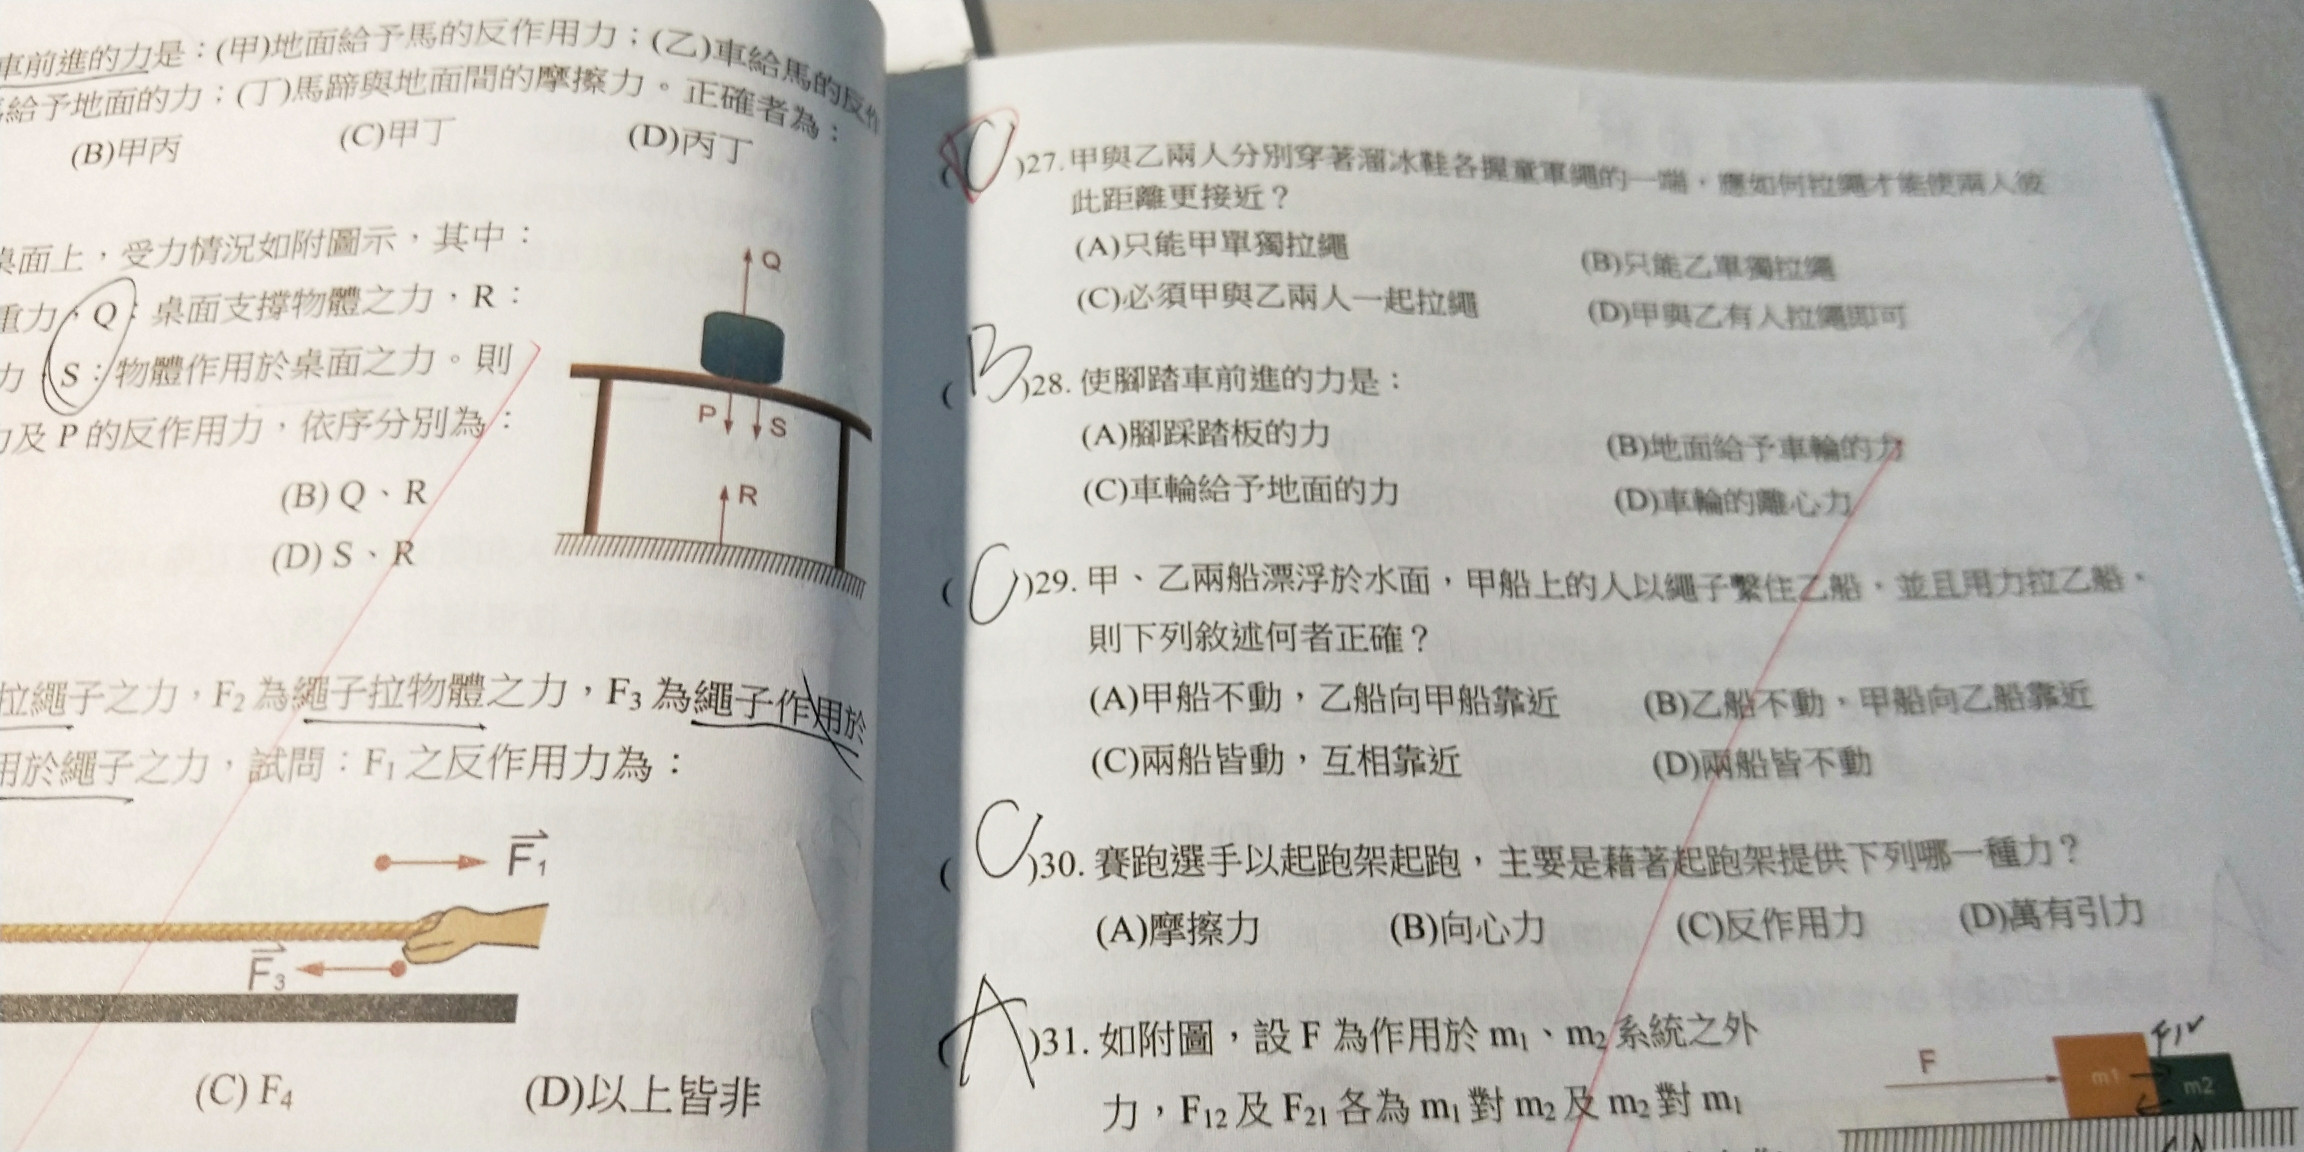 車前進的力是：(甲)地面給予馬的反作用力；(乙)車給馬的反作
給予地面的力；(丁)馬蹄與地面間的摩擦力。正確者為：
(B)甲丙 (C)甲丁 (D)丙丁
桌面上，受力情況如附圖示，其中：
重力，Q：桌面支撐物體之力，R：
力，S：物體作用於桌面之力。則
力及 P 的反作用力，依序分別為：
(B) Q、R
(D) S、R
Q
P
S
R
拉繩子之力，F2 為繩子拉物體之力，F3 為繩子作用於
用於繩子之力，試問：F1 之反作用力為：
F1
F3
(C) F4 (D)以上皆非
( )27. 甲與乙兩人分別穿著溜冰鞋各握童軍繩的一端，應如何拉繩才能使兩人彼
此距離更接近？
(A)只能甲單獨拉繩 (B)只能乙單獨拉繩
(C)必須甲與乙兩人一起拉繩 (D)甲與乙有人拉繩即可
( B )28. 使腳踏車前進的力是：
(A)腳踩踏板的力 (B)地面給予車輪的力
(C)車輪給予地面的力 (D)車輪的離心力
( C )29. 甲、乙兩船漂浮於水面，甲船上的人以繩子繫住乙船，並且用力拉乙船，
則下列敘述何者正確？
(A)甲船不動，乙船向甲船靠近 (B)乙船不動，甲船向乙船靠近
(C)兩船皆動，互相靠近 (D)兩船皆不動
( C )30. 賽跑選手以起跑架起跑，主要是藉著起跑架提供下列哪一種力？
(A)摩擦力 (B)向心力 (C)反作用力 (D)萬有引力
( A )31. 如附圖，設 F 為作用於 m1、m2 系統之外
力，F12 及 F21 各為 m1 對 m2 及 m2 對 m1
F
m1
m2